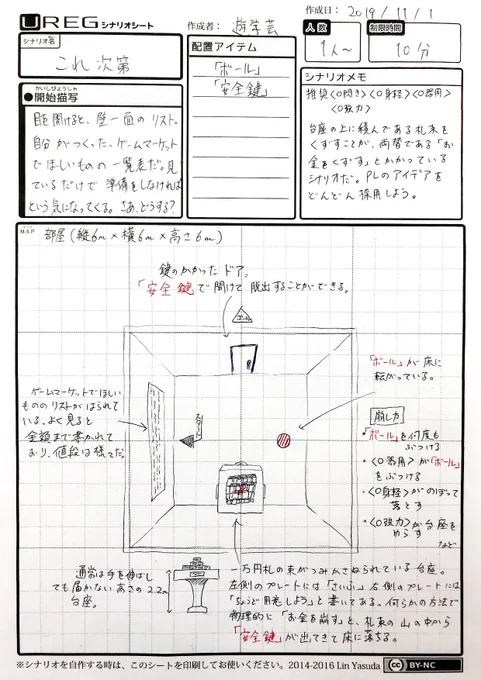 UREG シナリオシート
作成者: 遊学芸
作成日: 2019/11/1
シナリオ名
これ次第
配置アイテム
「ボール」
「安全鍵」
人数
1人〜
制限時間
10分
かいしびょうしゃ
●開始描写
目を開けると、壁一面のリスト。
自分がつくった、ゲームマーケット
でほしいものの一覧表だ。見
ているだけで 準備をしなければ
という気になってくる。さあ、どうする?
シナリオメモ
推奨〈○閃き〉〈○身軽〉〈○器用〉
〈○強力〉
台座の上に積んである札束を
くずすことが、両替である「お
金をくずす」とかかっている
シナリオだ。PLのアイデアを
どんどん採用しよう。
MAP
部屋(縦6m×横6m×高さ6m)
鍵のかかったドア。
「安全鍵」で開けて脱出することができる。
「ボール」が床に
転がっている。
ゲームマーケットでほしい
もののリストがはられて
いる。よく見ると
金額まで書かれて
おり、値段は様々だ。
崩し方
・「ボール」を何度も
ぶつける
・〈○器用〉が「ボール」
をぶつける
・〈○身軽〉がのぼって
落とす
・〈○強力〉が台座を
ゆらす
など
通常は手を伸ばし
ても届かない高さの2.2m
台座。
一万円札の束がつみかさねられている台座。
左側のプレートには「さいふ」右側のプレートには
「ちょうど用意しよう」と書いてある。何らかの方法で
物理的に「お金を崩す」と、札束の山の中から
「安全鍵」が出てきて床に落ちる。
※シナリオを自作する時は、このシートを印刷してお使いください。2014-2016 Lin Yasuda
cc BY-NC